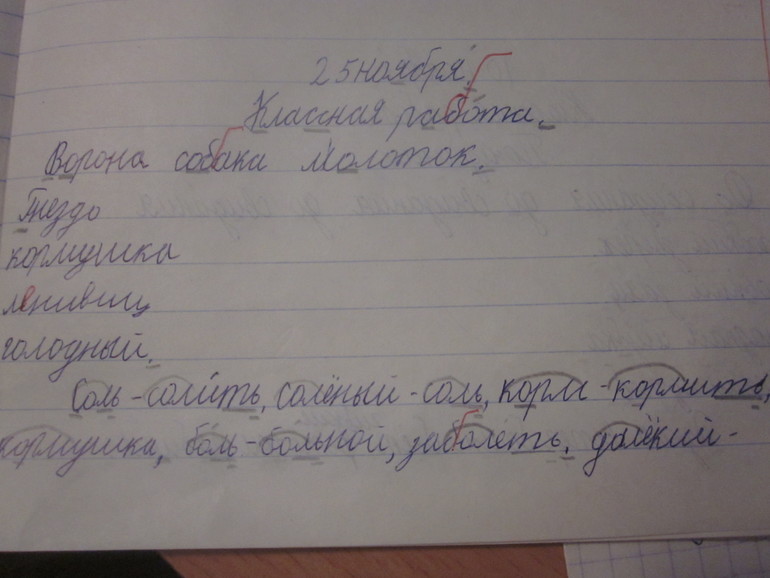 25 ноября.
Классная работа.
Ворона собака молоток.
Гнездо
кормушка
ленивиц
голодный.
Соль - солить, солёный - соль, корм - кормить,
кормушка, боль - больной, заболеть, далёкий -